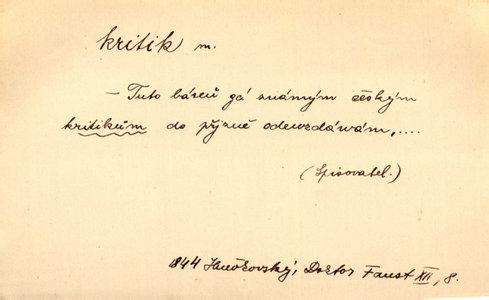 kritik m.
– Tuto báseň gá známým českým
kritikům do přjzně odewzdáwám,....
(Spisovatel.)
1844 Doktor Faust XII, 8.